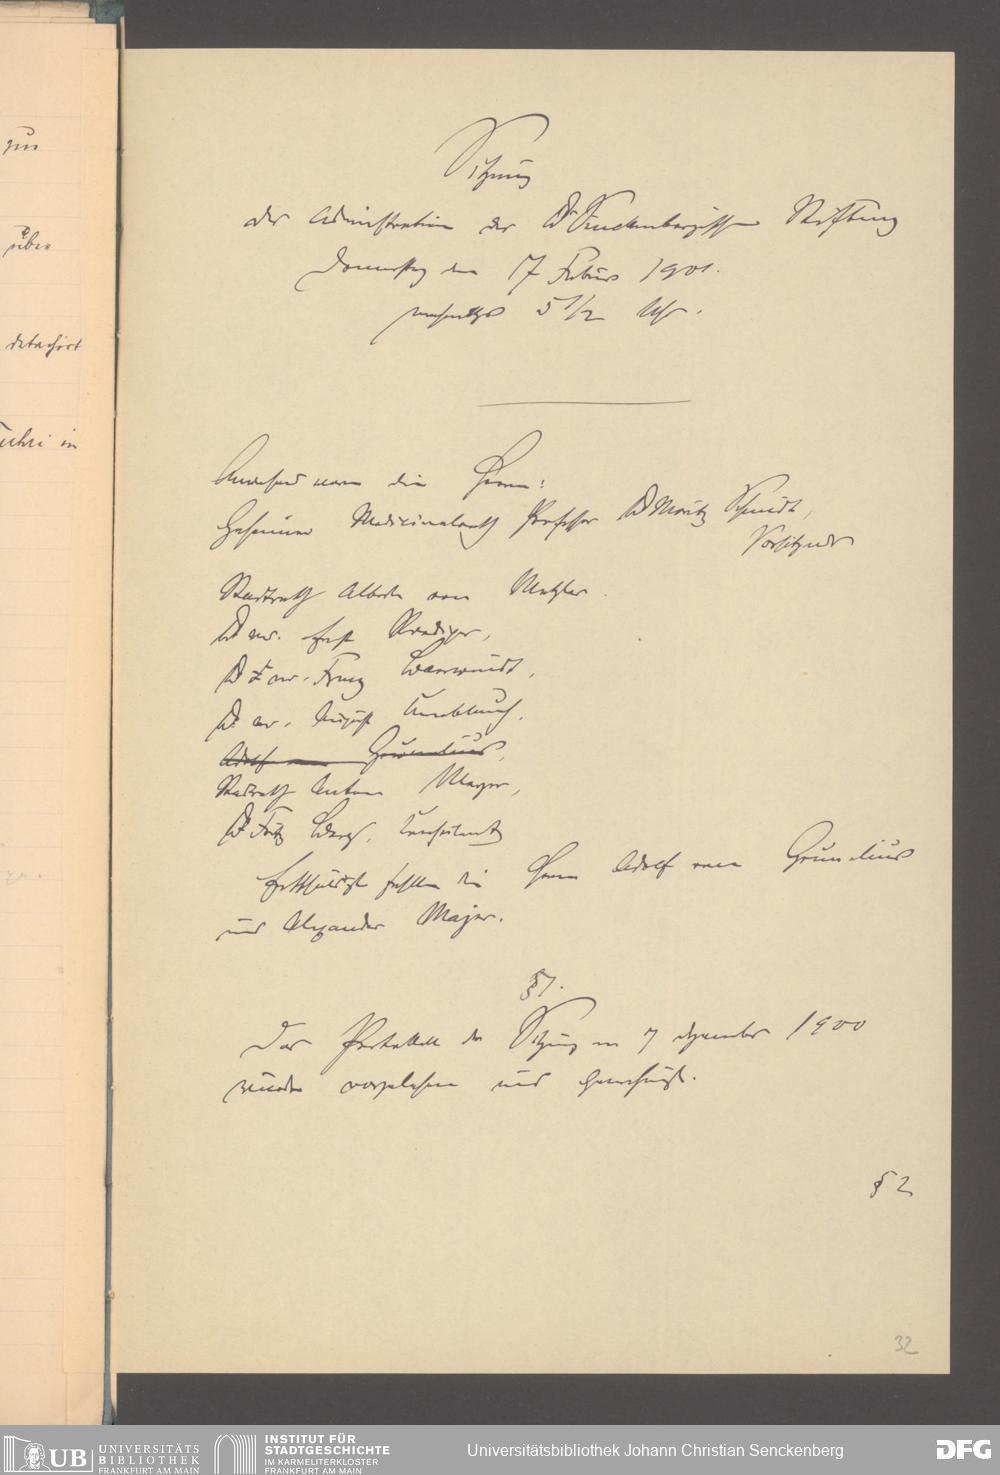 Sitzung
der Administration der Dr Senckenbergischen Stiftung
Donnerstag den 17 Februar 1901.
nachmittags 5 1/2 Uhr.
Anwesend waren die Herren:
Geheimer Medicinalrath Professor Dr Moritz Schmidt,
Vorsitzender
Stadtrath Albert von Metzler.
Dr med. Ernst Roediger,
Dr med. Franz Baerwindt,
Dr med. August Knoblauch,
Adolf von Grunelius,
Stadtrath Anton Meyer,
Dr Fritz Berg, Consulent
Entschuldigt fehlen die Herren Adolf von Grunelius
und Alexander Majer.
§ 1.
Das Protokoll der Sitzung vom 7 Dezember 1900
wurde vorgelesen und genehmigt.
§ 2
32
über
detachirt
in
UB UNIVERSITÄTS
BIBLIOTHEK
FRANKFURT AM MAIN
INSTITUT FÜR
STADTGESCHICHTE
IM KARMELITERKLOSTER
FRANKFURT AM MAIN
Universitätsbibliothek Johann Christian Senckenberg
DFG